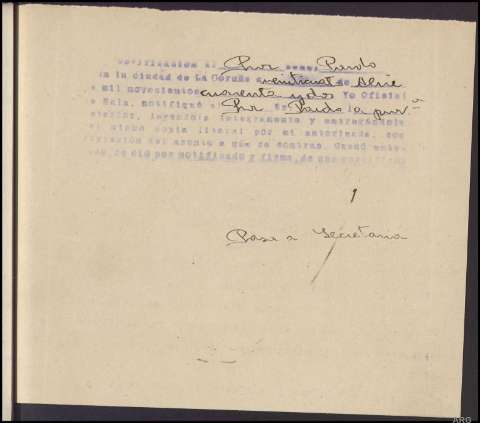 Notificación al Sr. Pardo
En la ciudad de La Coruña a veintiuno de Abril
de mil novecientos cuarenta y dos Yo Oficial
de Sala, notifiqué al Sr. Pardo la
anterior, leyéndole íntegramente y entregándole
al mismo copia literal por mi autorizada, con
expresión del asunto a que se contrae. Quedó ente-
rado, se dió por notificado y firma, de que certifico
Pase a Secretaria
ARG